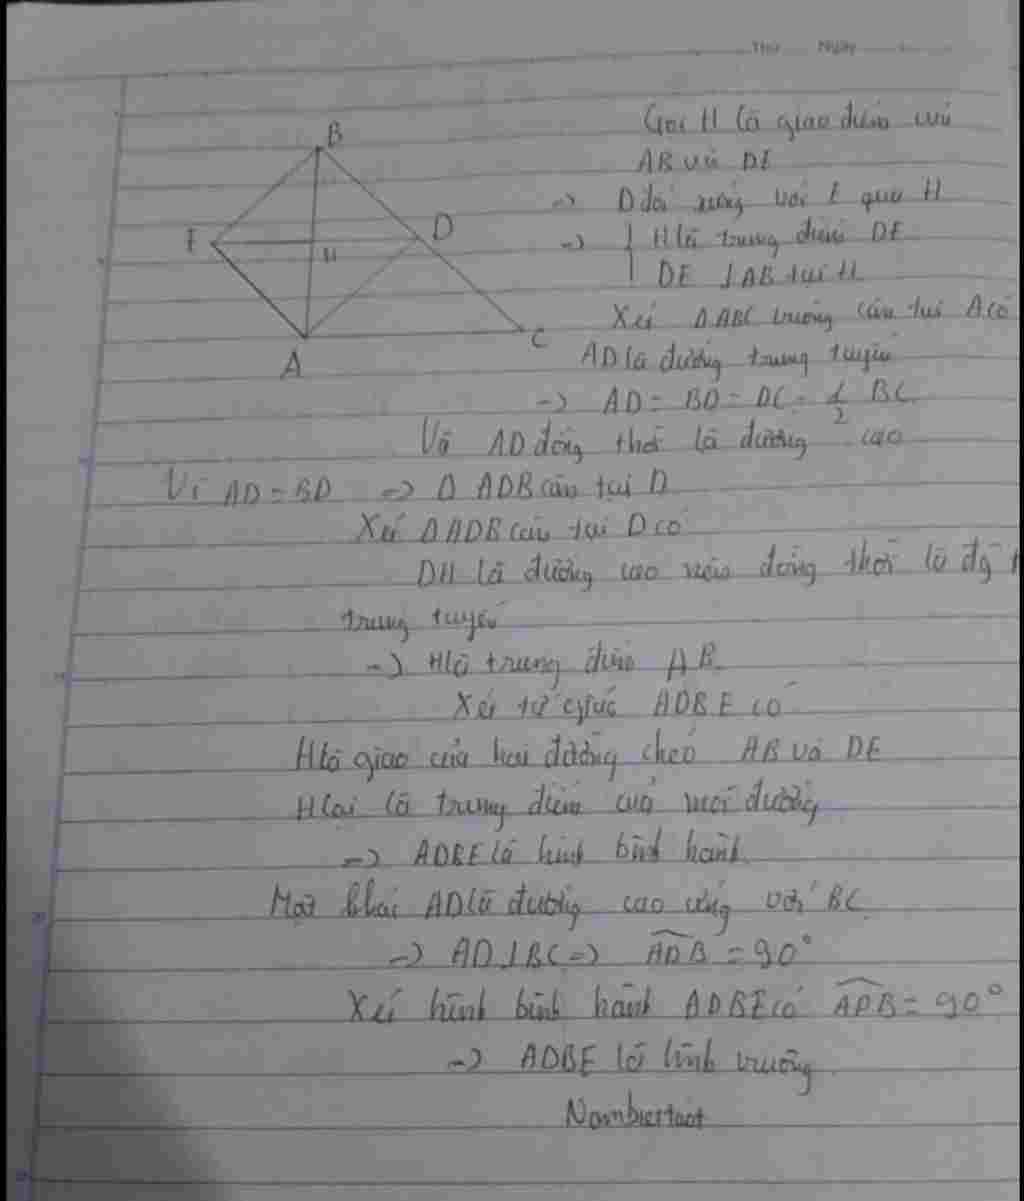 Thứ Ngày
Gọi H là giao điểm của
AB và DE
B
-> D đối xứng với E qua H
E D
-> H là trung điểm DE
H
DE ⊥ AB tại H
Xét Δ ABC vuông cân tại A có
C
A
AD là đường trung tuyến
-> AD = BD = DC = 1/2 BC
Và AD đồng thời là đường cao
Vì AD = BD => Δ ADB cân tại D
Xét Δ ADB cân tại D có
DH là đường cao nên đồng thời là
trung tuyến
-> H là trung điểm AB
Xét tứ giác ADBE có
H là giao của hai đường chéo AB và DE
H lại là trung điểm của mỗi đường
=> ADBE là hình bình hành
Mặt khác AD là đường cao ứng với BC
-> AD ⊥ BC => ADB = 90°
Xét hình bình hành ADBE có ADB = 90°
-> ADBE là hình vuông